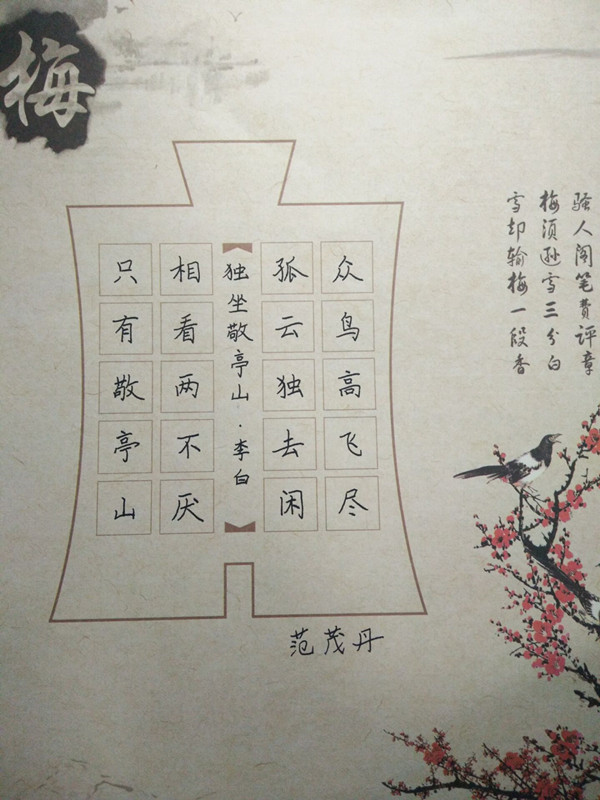 梅
骚人阁笔费评章
梅须逊雪三分白
雪却输梅一段香
众鸟高飞尽
孤云独去闲
独坐敬亭山·李白
相看两不厌
只有敬亭山
范茂丹